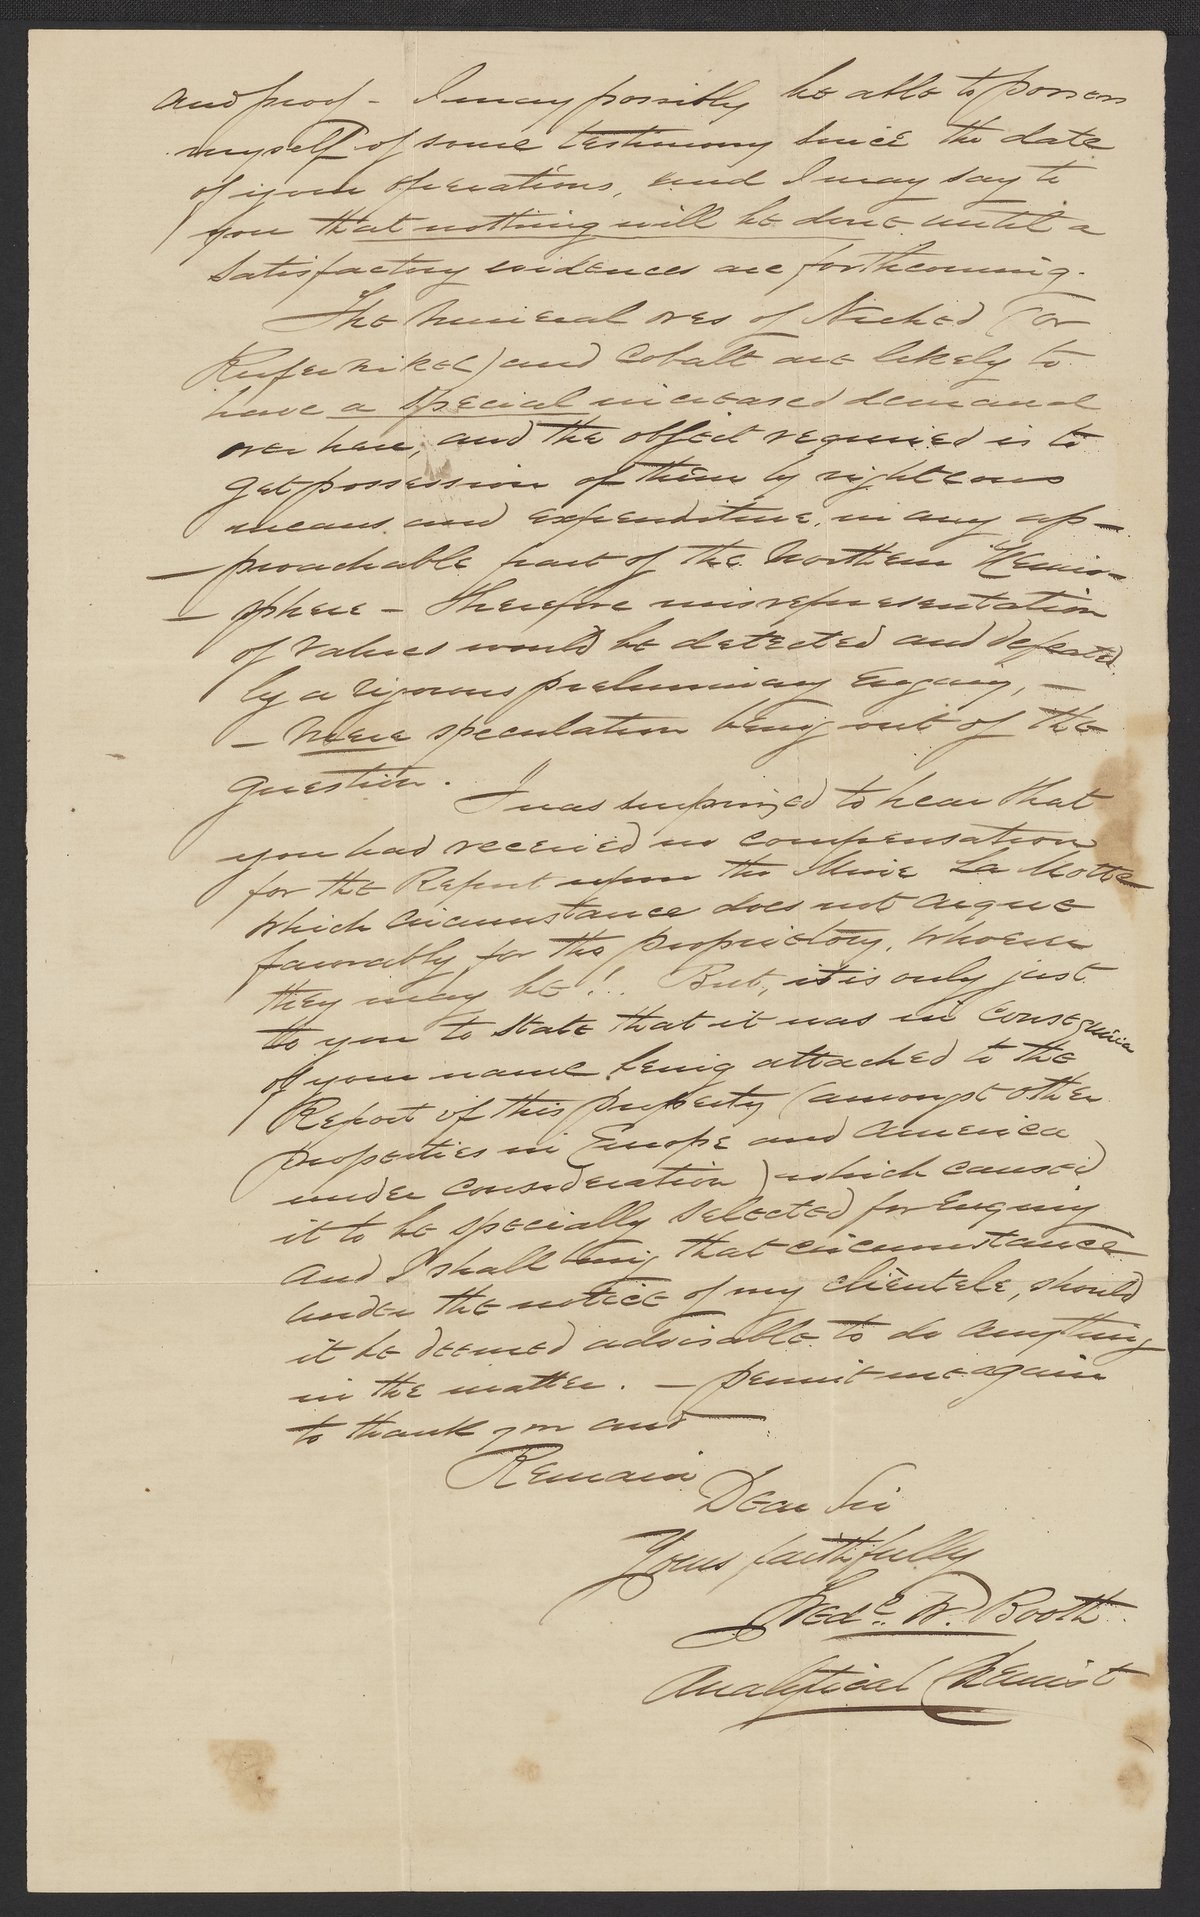 and proof - I may possibly be able to possess
myself of some testimony since the date
of your operations, and I may say to
you that nothing will be done until a
satisfactory evidences are forthcoming.
The mineral ores of Nickel (or
Kufernikel) and Cobalt are likely to
have a special increased demand
over here, and the object required is to
get possession of them by righteous
means and expenditure, in any ap-
-proachable part of the Northern Hemis-
-phere - Therefore misrepresentation
of values would be detected and defeated
by a rigorous preliminary Enquiry, -
- mere speculation being out of the
question.
I was surprized to hear that
you had received no compensation
for the Report upon the Mine La Motte
which circumstance does not argue
favorably for the proprietory, whoever
they may be! .. But, it is only just
to you to state that it was in consequence
of your name being attached to the
Report of this property (amongst other
properties in Europe and America
under consideration) which caused
it to be specially selected for Enquiry
and I shall bring that circumstance
under the notice of my clièntele, should
it be deemed advisable to do anything
in the matter. - permit me again
to thank you and
Remain
Dear Sir
Yours faithfully
Fredc. W. Booth
Analytical Chemist